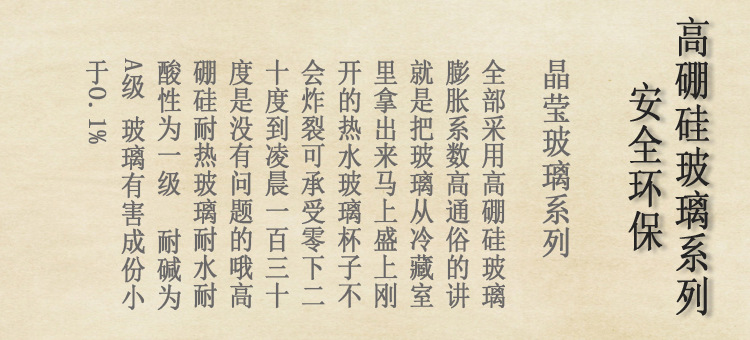 高硼硅玻璃系列
安全环保
晶莹玻璃系列
全部采用高硼硅玻璃
膨胀系数高通俗的讲
就是把玻璃从冷藏室
里拿出来马上盛上刚
开的热水玻璃杯子不
会炸裂可承受零下二
十度到凌晨一百三十
度是没有问题的哦高
硼硅耐热玻璃耐水耐
酸性为一级 耐碱为
A级 玻璃有害成份小
于0.1%